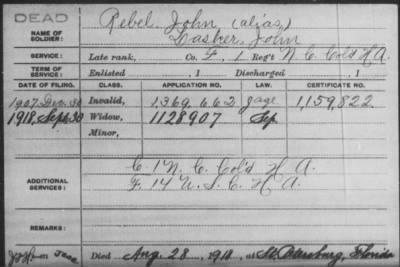 DEAD
NAME OF SOLDIER:
Rebel, John, (alias,)
Lasker, John
SERVICE:
Late rank, Co. F, 1 Reg't N. C. Col'd H. A.
TERM OF SERVICE:
Enlisted , 1 Discharged , 1
DATE OF FILING. CLASS. APPLICATION NO. LAW. CERTIFICATE NO.
1907, Dec. 30 Invalid, 1,369,662 1,159,822
1918, Sept 30 Widow, 1128907 Sep
Minor,
ADDITIONAL SERVICES:
C. 1 N. C. Col'd H. A.
F. 14 U. S. C. H. A.
REMARKS:
Died Aug. 28, 1918, at St. Petersburg, Florida